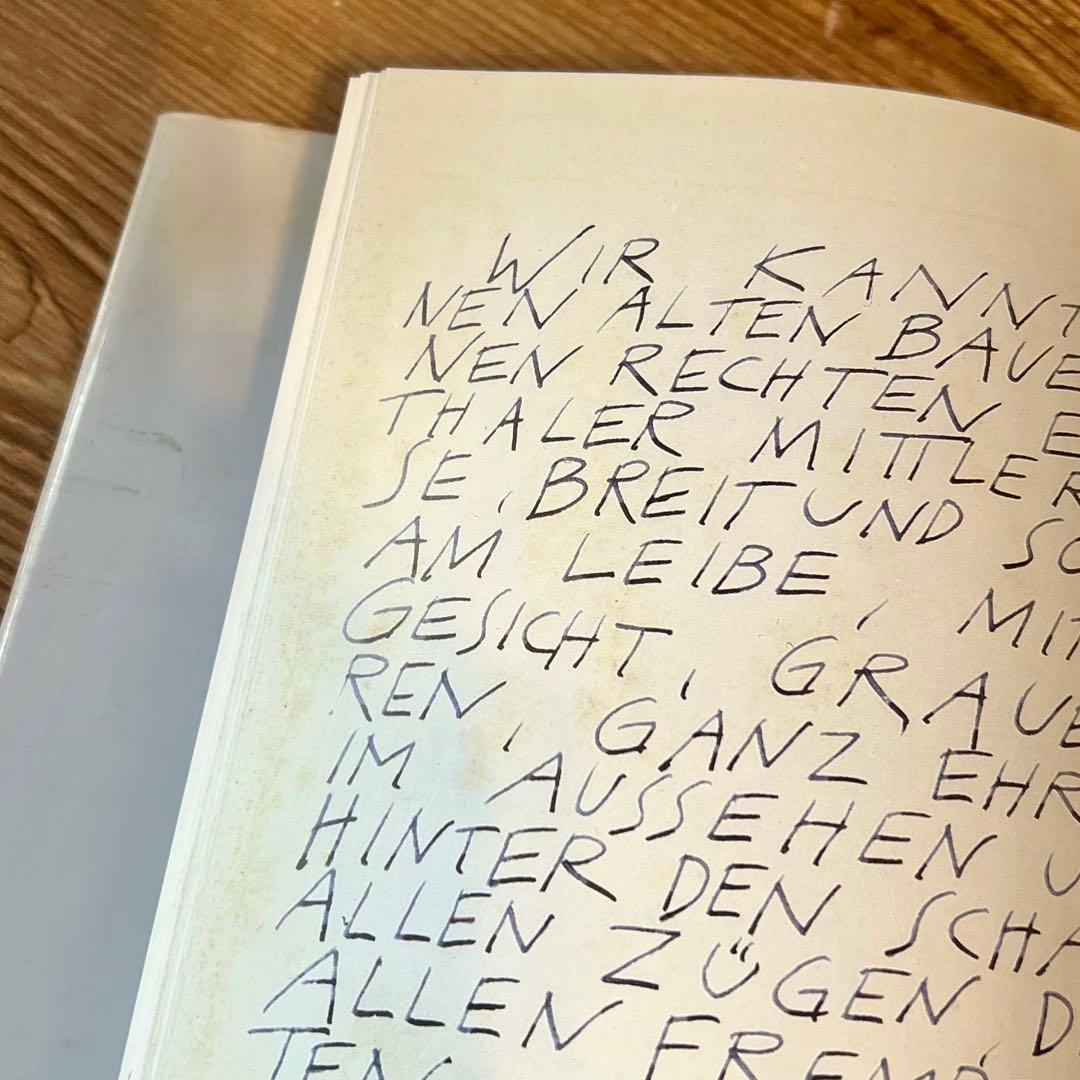 WIR KANNT
NEN ALTEN BAUE
NEN RECHTEN E
THALER MITTLER
SE, BREIT UND SC
AM LEIBE, MIT
GESICHT, GRAUE
REN, GANZ EHR
IM AUSSEHEN U
HINTER DEN SCHA
ALLEN ZÜGEN, D
ALLEN FREMD
TEN